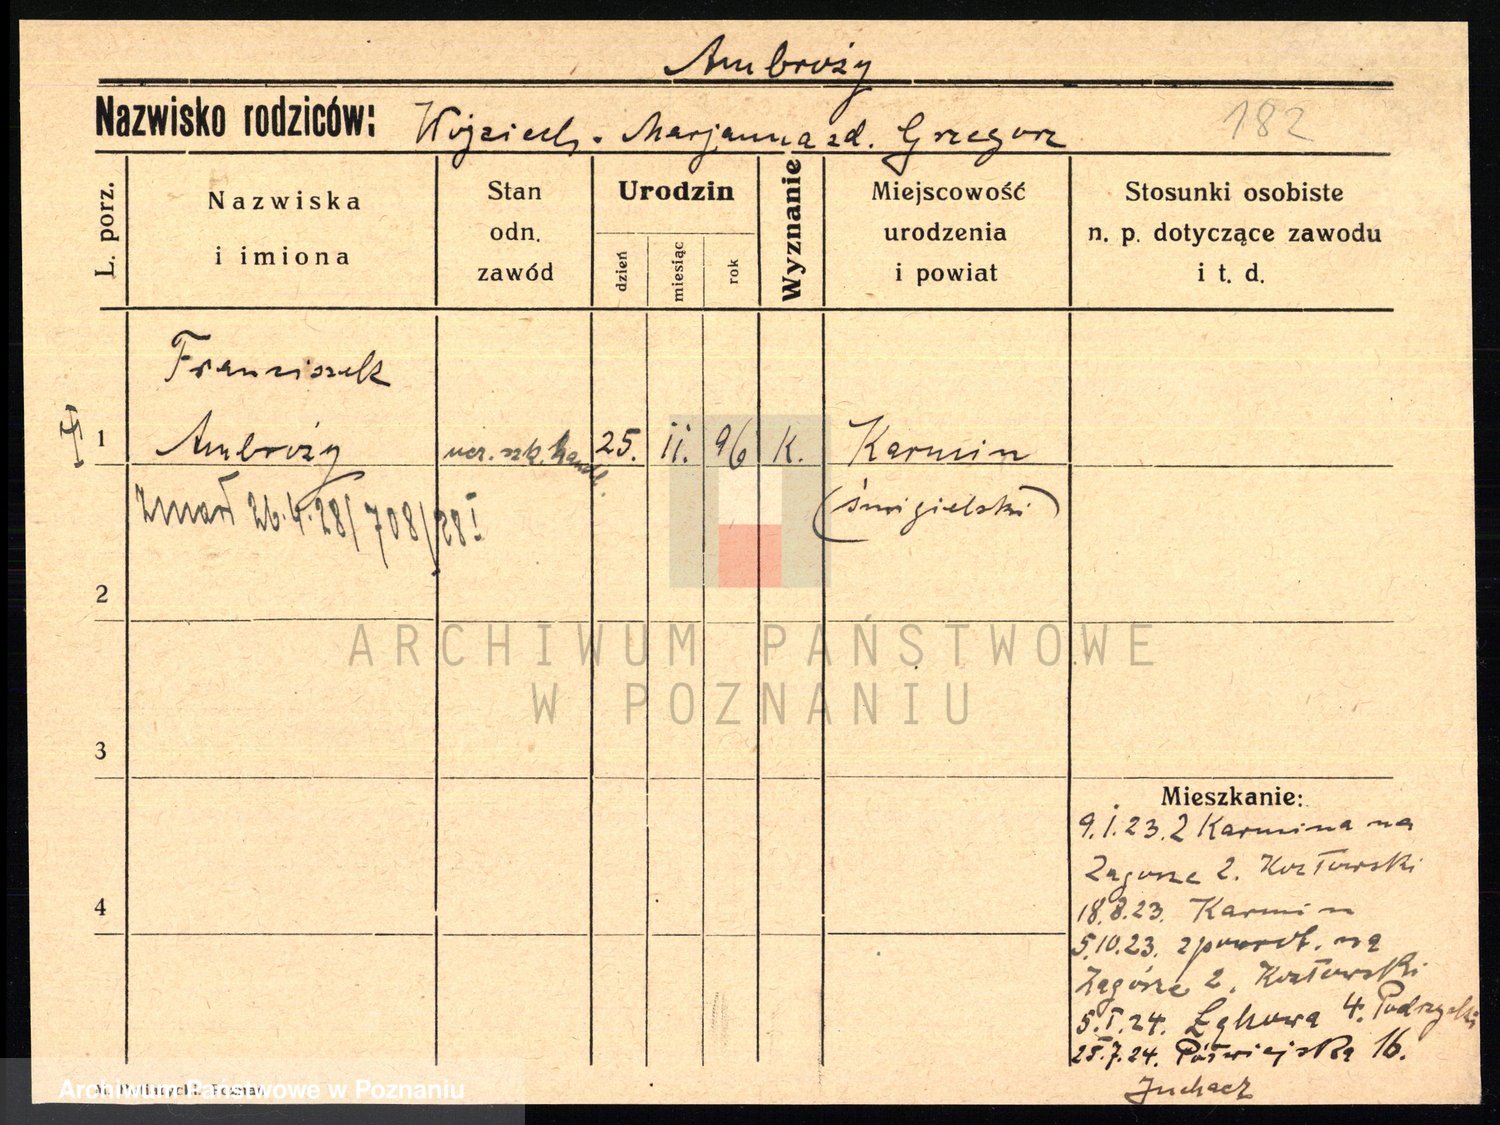 Ambroży
Nazwisko rodziców: Wojciech - Marjanna zd. Grzegorz
182
L. porz.
Nazwiska
i imiona
Stan
odn.
zawód
Urodzin
dzień
miesiąc
rok
Wyznanie
Miejscowość
urodzenia
i powiat
Stosunki osobiste
n. p. dotyczące zawodu
i t. d.
Franciszek
1 Ambroży ucz. szk. handl. 25. II. 96 K. Karmin
(śmigielski)
Zmarł 26.4.28/708/28 I
2
ARCHIWUM PAŃSTWOWE
W POZNANIU
3
Mieszkanie:
9.I.23. z Karmina na
Zagórze 2. Kozłowski
4
18.8.23. Karmin
5.10.23. zpowrot. na
Zagórze 2. Kozłowski
5.I.24. Łąkowa 4.
25.7.24. Półwiejska 16.
Juchacz
Archiwum Państwowe w Poznaniu
Poznań